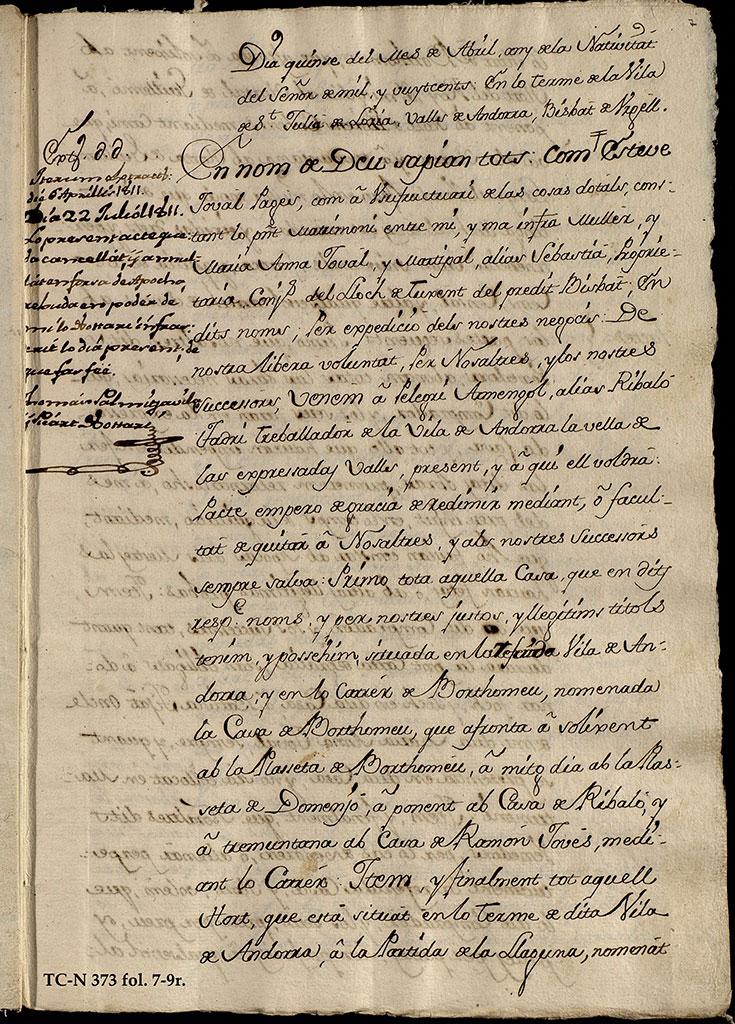 7
Dia quinse del Mes de Abril, any de la Nativitat
del Señor de mil, y vuytcents: En lo terme de la Vila
de St. Julia de Loria, Valls de Andorra, Bisbat de Vrgell.
En nom de Deu sapian tots: Com Esteve
Toval Pages, com â Vsufructuari de las cosas dotals, cons-
tant lo pñt Matrimoni entre mi, y ma infra Muller, y
Maria Anna Toval, y Martipal, alias Sebastiâ, Proprie-
taria Conj. del Lloch de Turent del predit Bisbat; En
dits noms, Per expediciô dels nostres negocis: De
nostra libera voluntat, Per Nosaltres, y los nostres
Successors, Venem â Pelegri Armengol, alias Ribalô
Fadri treballador de la Vila de Andorra la vella de
las expressadas Valls, present, y â qui ell voldrâ:
Pacte empero de gracia de redimir mediant, ô facul-
tat de quitar â Nosaltres, y als nostres Successors
sempre salva: Primo tota aquella Casa, que en dits
respe. noms, y per nostres justos, y llegitims titols
tenim, y possehim, situada en la referida Vila de An-
dorra, y en lo Carrér de Borthomeu, nomenada
la Casa de Borthomeu, que afronta â solixent
ab la Plasseta de Borthomeu, â mitg dia ab la Plas-
seta de Domenjô, â ponent ab Casa de Ribalô, y
â tremuntana ab Casa de Ramon Tovés, medi-
ant lo Carrér: Item, y finalment tot aquell
Hort, que está situat en lo terme de dita Vila
de Andorra, â la Partida de la Llaguna, nomenat
d. d.
Iterum
die 6 Aprilis 1811.
Dia 22 Juliól 1811.
Lo present acte que-
da cancellat, y annul-
lat en forsa de Apocha
rebuda en poder de
mi lo Nottari infras-
crit lo dia present, de
que fas fee.
Thomás Palmitjavila
y Picart Nottari
TC-N 373 fol. 7-9r.